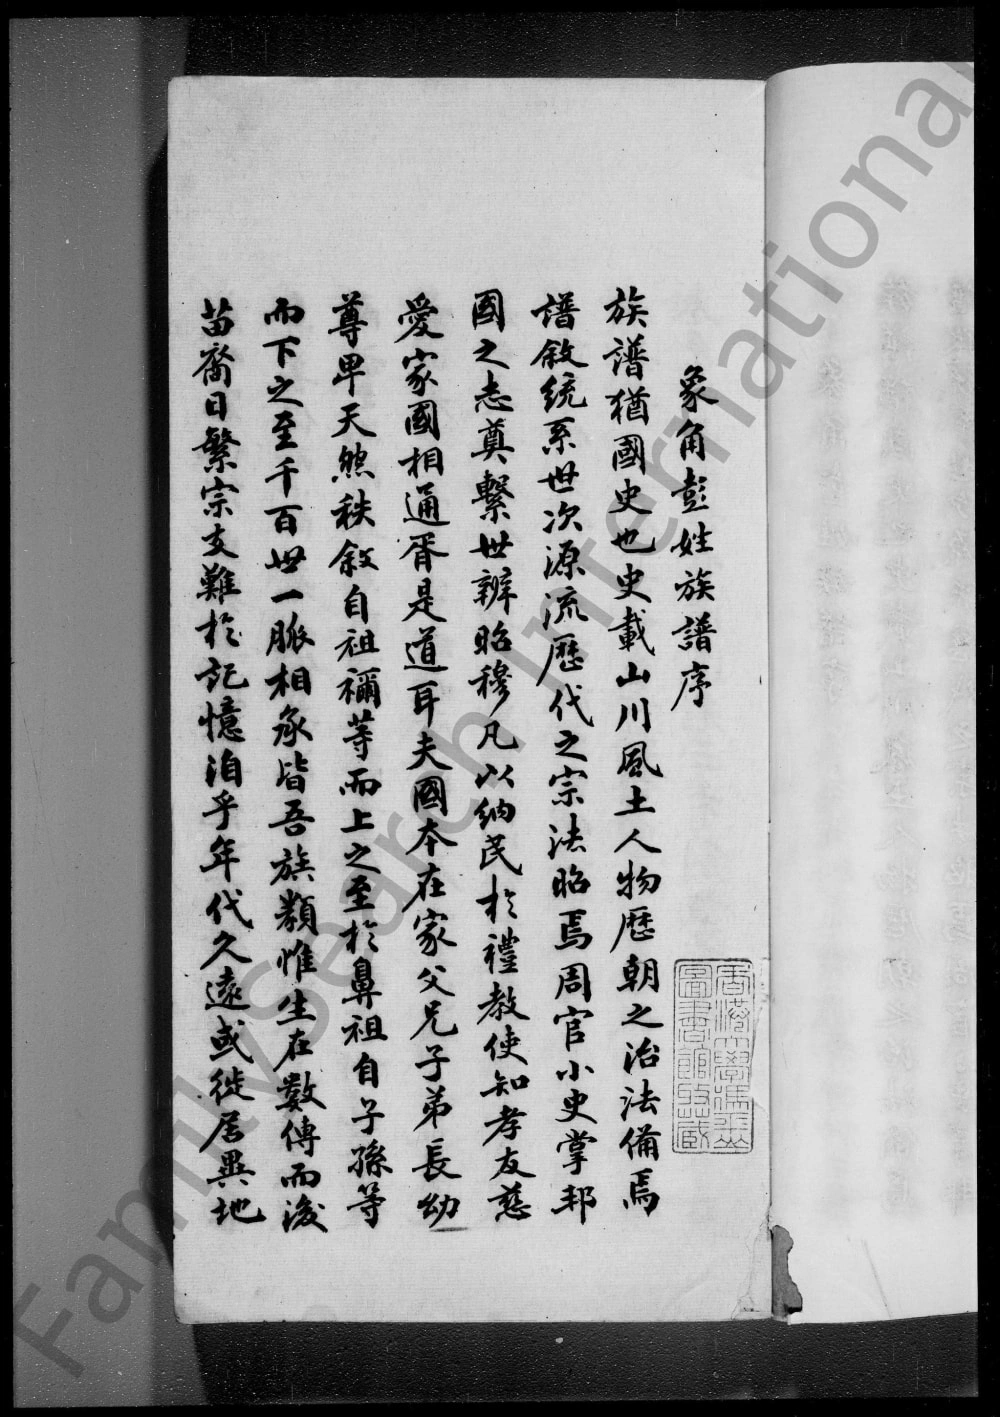 象角彭姓族譜序
族譜猶國史也史載山川風土人物歷朝之治法備焉
譜敘統系世次源流歷代之宗法昭焉周官小史掌邦
國之志奠繫世辨昭穆凡以納民於禮教使知孝友慈
愛家國相通胥是道耳夫國本在家父兄子弟長幼
尊卑天然秩敘自祖禰等而上之至於鼻祖自子孫等
而下之至千百世一脈相承皆吾族類惟生在數傳而後
苗裔日繁宗支難於記憶洎乎年代久遠或徙居異地
香港大學馮平山
圖書館藏
FamilySearch International